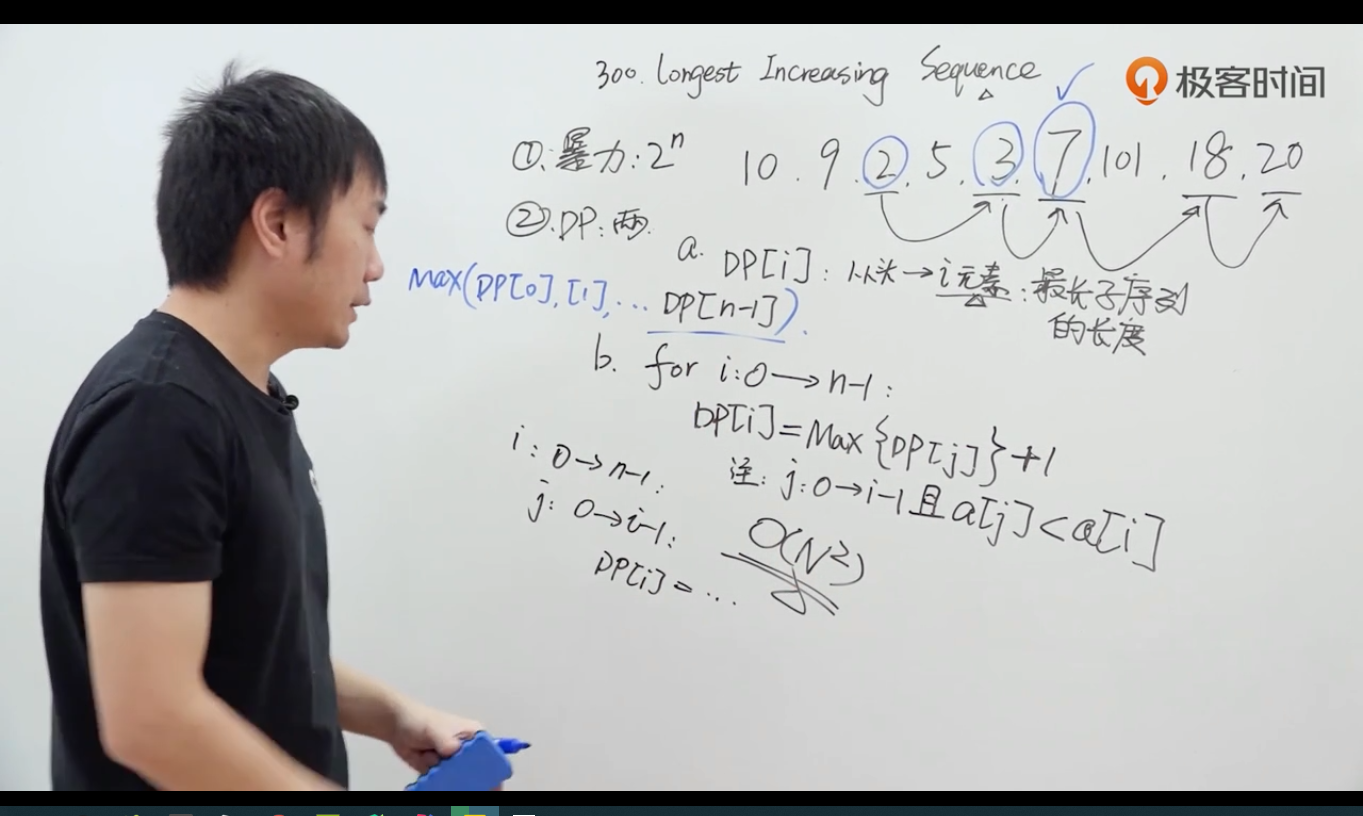 300. Longest Increasing Sequence
极客时间
①.暴力:2ⁿ
10.9.2.5.3.7.101.18.20
②.DP:两.
a. DP[i]:从头→i元素:最长子序列
的长度
Max(DP[0],[1],...DP[n-1]).
b. for i:0→n-1:
DP[i]=Max{DP[j]}+1
注:j:0→i-1且a[j]<a[i]
i:0→n-1:
j:0→i-1:
DP[i]=...
O(N²)